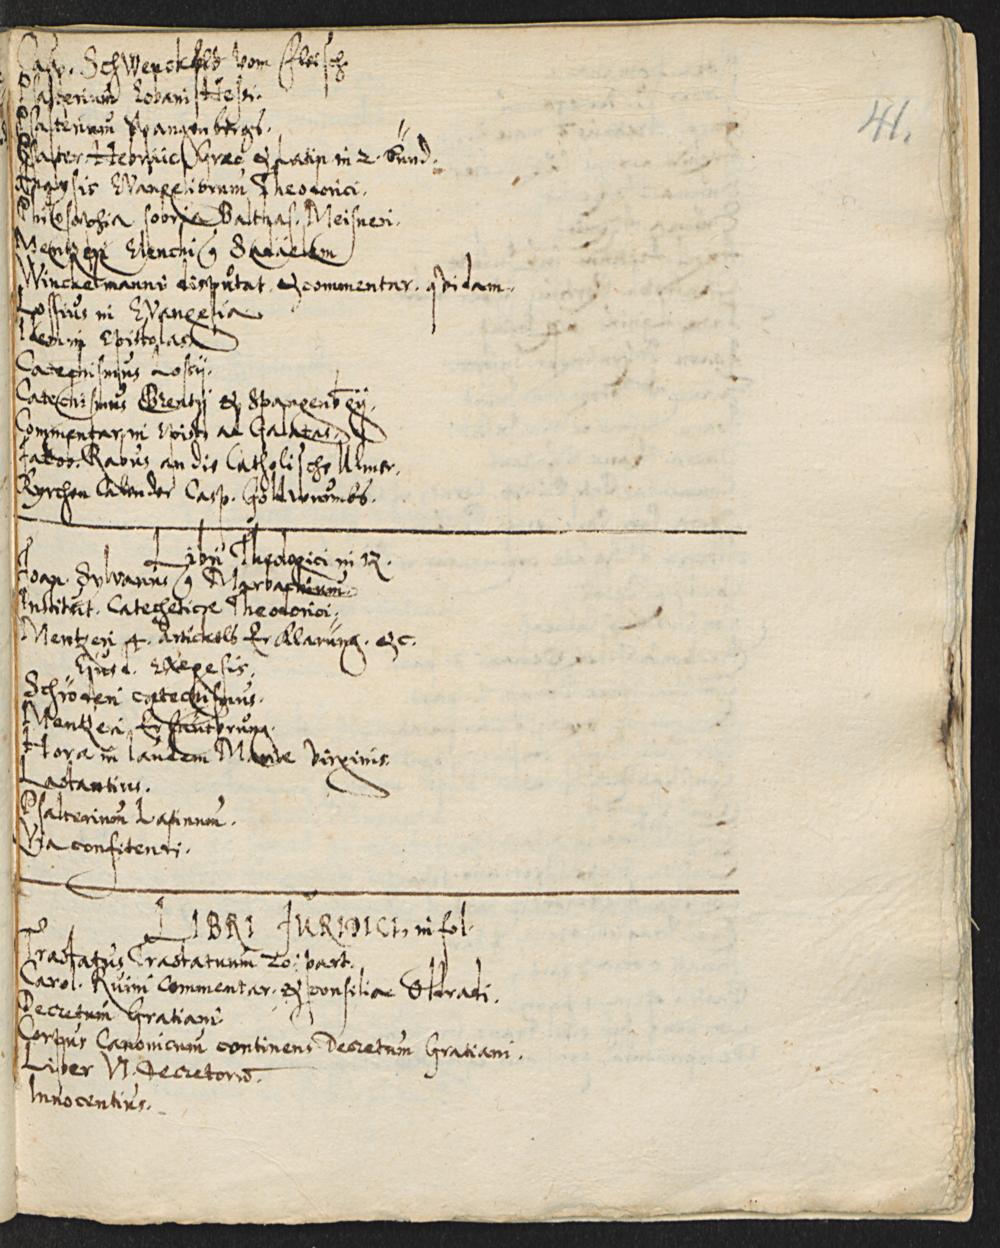 Casp. Schwenckfeld vom Fleisch
Psalterium Eobani Hessi.
Psalterium Spangenbergs.
Psalter. Hebraic. Graec. & Latin in 2. Bünd.
Analysis Evangeliorum Theodorici.
Philosophia sobria Balthas. Meisneri.
Mentzeri Elenchi
Winckelmanni disputat. & commentar. quidam.
Lossius in Evangelia
Idem in Epistolas
Catechismus Lossij.
Catechismus Brentij & Spangenbergij.
Commentar. in Epist. ad Galatas.
Jacob. Rabus an die Catholische Ulmer.
Kyrchen Calender Casp. Goldwurmbs.
Libri Theologici in 12.
Joan. Sylvanus Marbachium
Institut. Catecheticae Theodorici.
Mentzeri 4. Artickels Erklarung. &c.
Ejusd. Exegesis.
Schröderi catechismus.
Mentzeri Erleuterung.
Hora in laudem Mariae Virginis.
Lactantius.
Psalterium Latinum.
Via confitendi.
LIBRI JURIDICI, in fol.
Tractatus Tractatuum 20. part.
Carol. Ruini commentar. & consiliae Oldradi.
Decretum Gratiani
Corpus Canonicum continens Decretum Gratiani.
Liber VI. Decretorū.
Innocentius.
41.